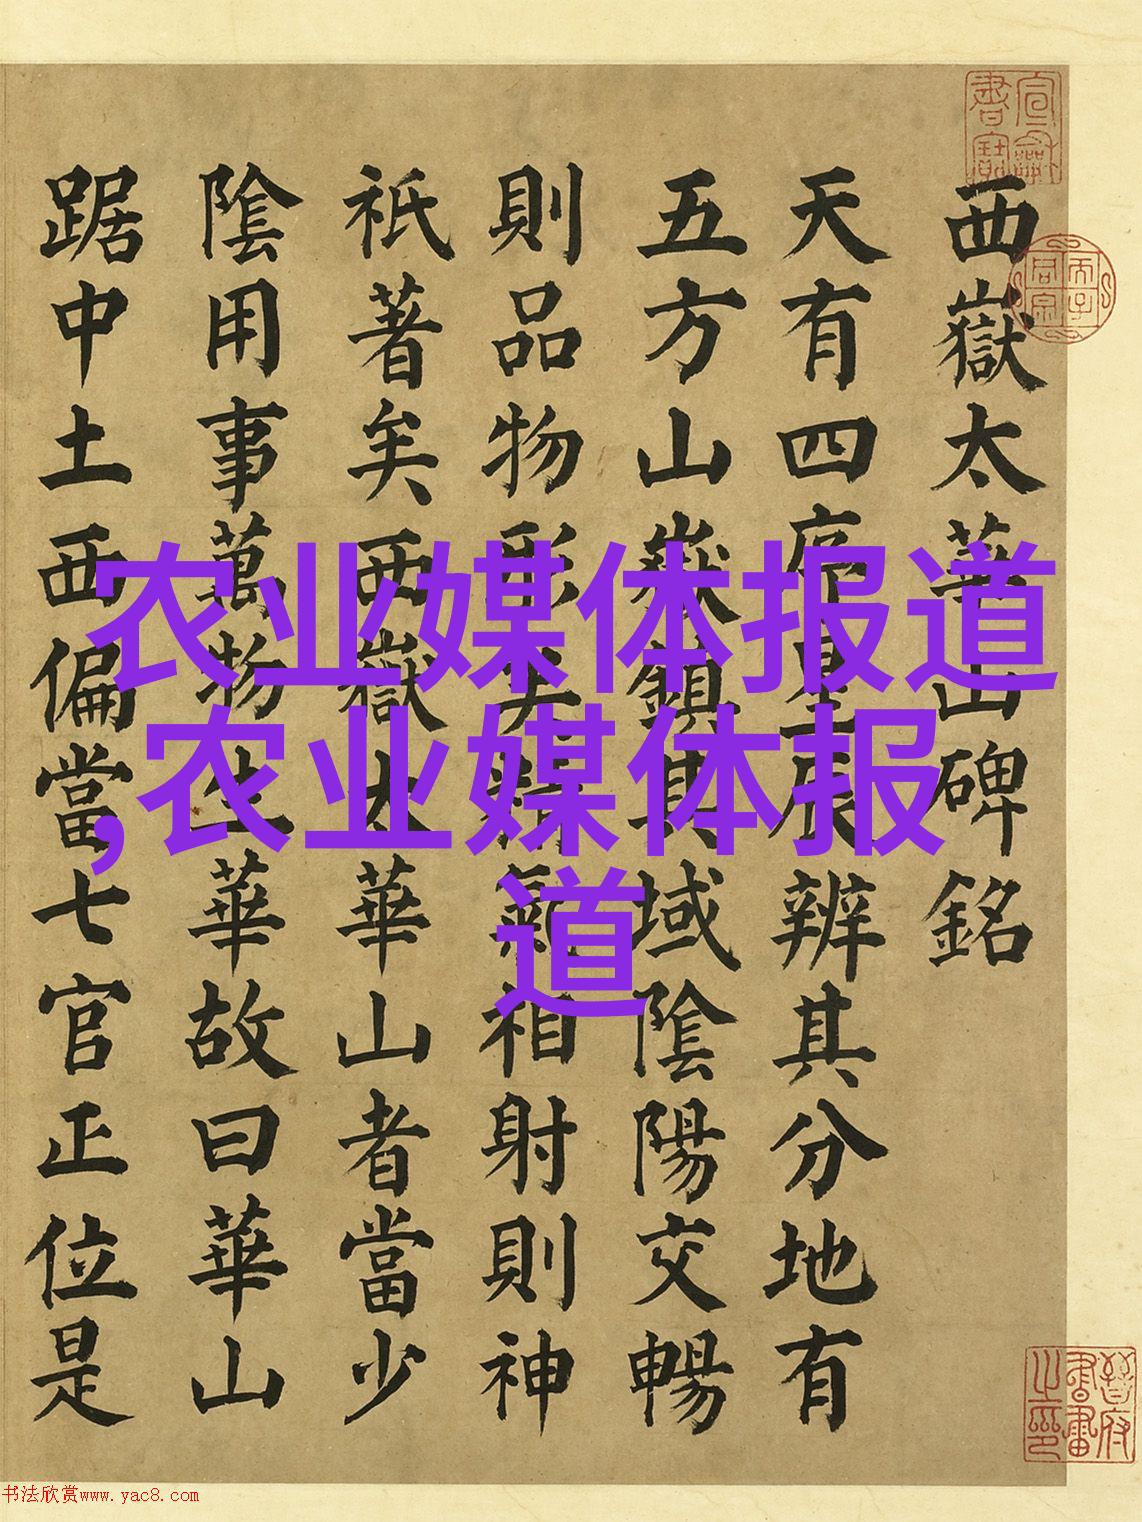 西嶽太華山碑銘
天有四序星辰辨其分地有
五方山嶽鎮其域陰陽交暢
則品物形矣精氣相射則神
祇著矣西嶽太華山者當少
陰用事萬物生華故曰華山
踞中土西偏當七官正位是
农业媒体报道
,农业媒体报
道
晉府書畫之印
书法欣赏www.yac8.com